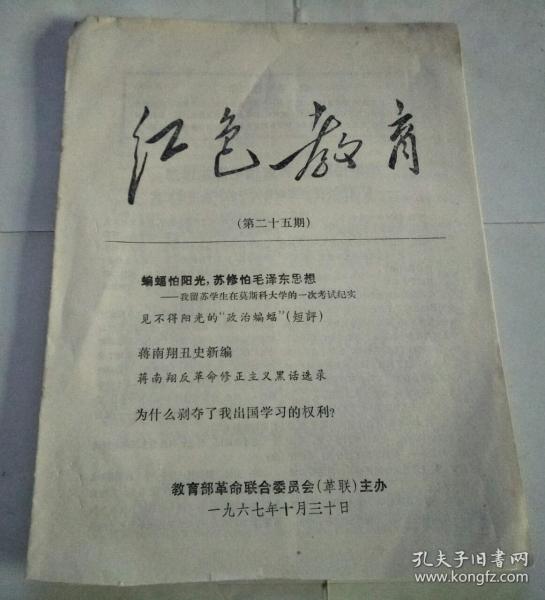 红色教育
(第二十五期)
蝙蝠怕阳光，苏修怕毛泽东思想
——我留苏学生在莫斯科大学的一次考试纪实
见不得阳光的“政治蝙蝠”(短評)
蒋南翔丑史新编
蒋南翔反革命修正主义黑话选录
为什么剥夺了我出国学习的权利?
教育部革命联合委员会(革联)主办
一九六七年十月三十日
孔夫子旧书网
www.kongfz.com